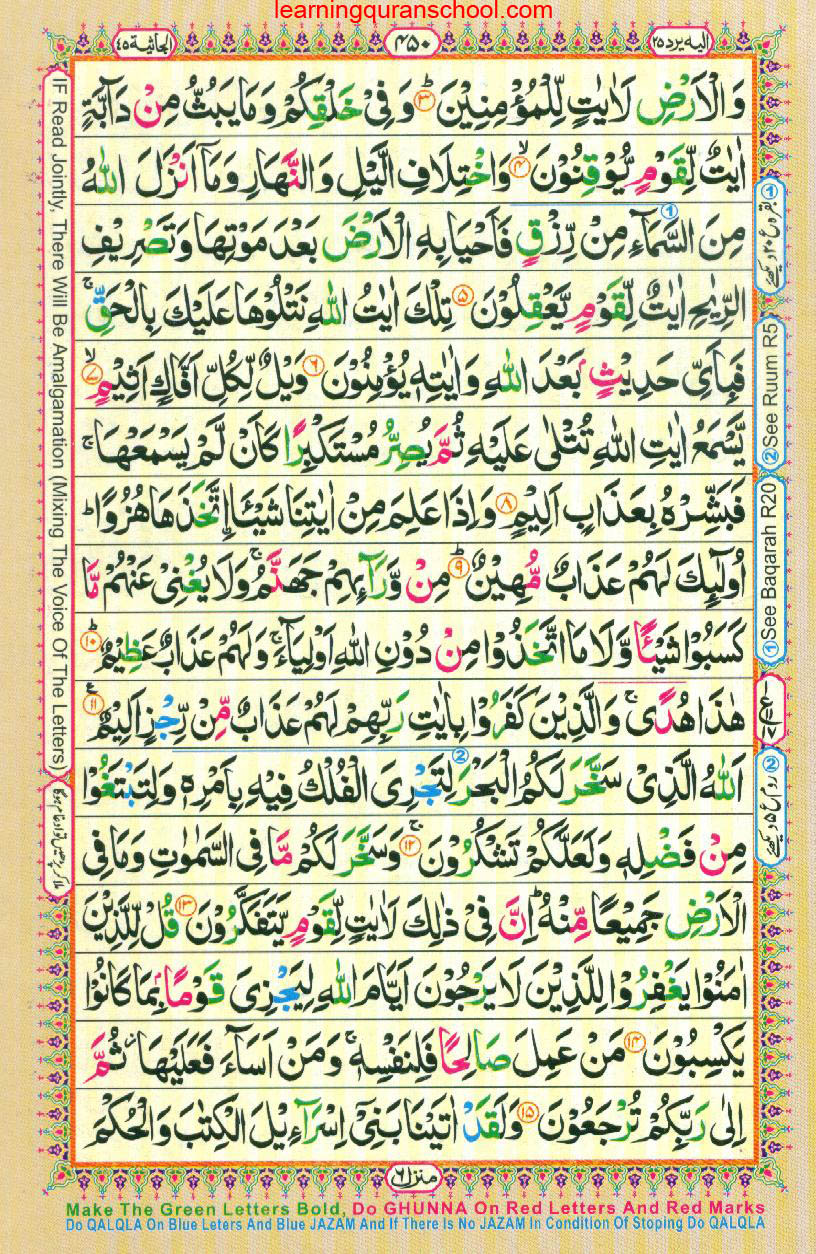 learningquranschool.com
الیه یرد ۲۵
۴۵۰
الجاثیة ۴۵
وَالۡاَرۡضِ لَاٰيٰتٍ لِّلۡمُؤۡمِنِيۡنَ ؕ‏﴿۳﴾ وَفِىۡ خَلۡقِكُمۡ وَمَا يَبُثُّ مِنۡ دَآبَّةٍ
اٰيٰتٌ لِّقَوۡمٍ يُّوۡقِنُوۡنَ ۙ‏﴿۴﴾ وَاخۡتِلَافِ الَّيۡلِ وَالنَّهَارِ وَمَاۤ اَنۡزَلَ اللّٰهُ
مِنَ السَّمَآءِ مِنۡ رِّزۡقٍ فَاَحۡيَا بِهِ الۡاَرۡضَ بَعۡدَ مَوۡتِهَا وَتَصۡرِيۡفِ
الرِّيٰحِ اٰيٰتٌ لِّقَوۡمٍ يَّعۡقِلُوۡنَ‏﴿۵﴾ تِلۡكَ اٰيٰتُ اللّٰهِ نَتۡلُوۡهَا عَلَيۡكَ بِالۡحَقِّ ۚ
فَبِاَىِّ حَدِيۡثٍۢ بَعۡدَ اللّٰهِ وَاٰيٰتِهٖ يُؤۡمِنُوۡنَ‏﴿۶﴾ وَيۡلٌ لِّكُلِّ اَفَّاكٍ اَثِيۡمٍ ۙ‏﴿۷﴾
يَّسۡمَعُ اٰيٰتِ اللّٰهِ تُتۡلٰى عَلَيۡهِ ثُمَّ يُصِرُّ مُسۡتَكۡبِرًا كَاَنۡ لَّمۡ يَسۡمَعۡهَا ۚ
فَبَشِّرۡهُ بِعَذَابٍ اَلِيۡمٍ‏﴿۸﴾ وَاِذَا عَلِمَ مِنۡ اٰيٰتِنَا شَيۡئًـا اۨتَّخَذَهَا هُزُوًا ؕ
اُولٰٓٮِٕكَ لَهُمۡ عَذَابٌ مُّهِيۡنٌ ؕ‏﴿۹﴾ مِنۡ وَّرَآٮِٕهِمۡ جَهَنَّمُ ۚ وَلَا يُغۡنِىۡ عَنۡهُمۡ مَّا
كَسَبُوۡا شَيۡـًٔـا وَّلَا مَا اتَّخَذُوۡا مِنۡ دُوۡنِ اللّٰهِ اَوۡلِيَآءَ ۚ وَلَهُمۡ عَذَابٌ عَظِيۡمٌ ؕ‏﴿۱۰﴾
هٰذَا هُدًى ۚ وَالَّذِيۡنَ كَفَرُوۡا بِاٰيٰتِ رَبِّهِمۡ لَهُمۡ عَذَابٌ مِّنۡ رِّجۡزٍ اَلِيۡمٌ‏﴿۱۱﴾
اَللّٰهُ الَّذِىۡ سَخَّرَ لَكُمُ الۡبَحۡرَ لِتَجۡرِىَ الۡفُلۡكُ فِيۡهِ بِاَمۡرِهٖ وَلِتَبۡتَغُوۡا
مِنۡ فَضۡلِهٖ وَلَعَلَّكُمۡ تَشۡكُرُوۡنَ ۚ‏﴿۱۲﴾ وَسَخَّرَ لَكُمۡ مَّا فِى السَّمٰوٰتِ وَمَا فِى
الۡاَرۡضِ جَمِيۡعًا مِّنۡهُ ؕ اِنَّ فِىۡ ذٰلِكَ لَاٰيٰتٍ لِّقَوۡمٍ يَّتَفَكَّرُوۡنَ‏﴿۱۳﴾ قُلْ لِّلَّذِيۡنَ
اٰمَنُوۡا يَغۡفِرُوۡا لِلَّذِيۡنَ لَا يَرۡجُوۡنَ اَيَّامَ اللّٰهِ لِيَجۡزِىَ قَوۡمًۢا بِمَا كَانُوۡا
يَكۡسِبُوۡنَ‏﴿۱۴﴾ مَنۡ عَمِلَ صَالِحًـا فَلِنَفۡسِهٖ ۚ وَمَنۡ اَسَآءَ فَعَلَيۡهَا ؗ ثُمَّ
اِلٰى رَبِّكُمۡ تُرۡجَعُوۡنَ‏﴿۱۵﴾ وَلَقَدۡ اٰتَيۡنَا بَنِىۡۤ اِسۡرَآءِيۡلَ الۡكِتٰبَ وَالۡحُكۡمَ
منزل ۶
① بقرہ ع ۲۰ دیکھئے
② See Ruum R5
① See Baqarah R20
② روم ع ۵ دیکھئے
IF Read Jointly, There Will Be Amalgamation (Mixing The Voice Of The Letters)
Make The Green Letters Bold, Do GHUNNA On Red Letters And Red Marks
Do QALQLA On Blue Leters And Blue JAZAM And If There Is No JAZAM In Condition Of Stoping Do QALQLA